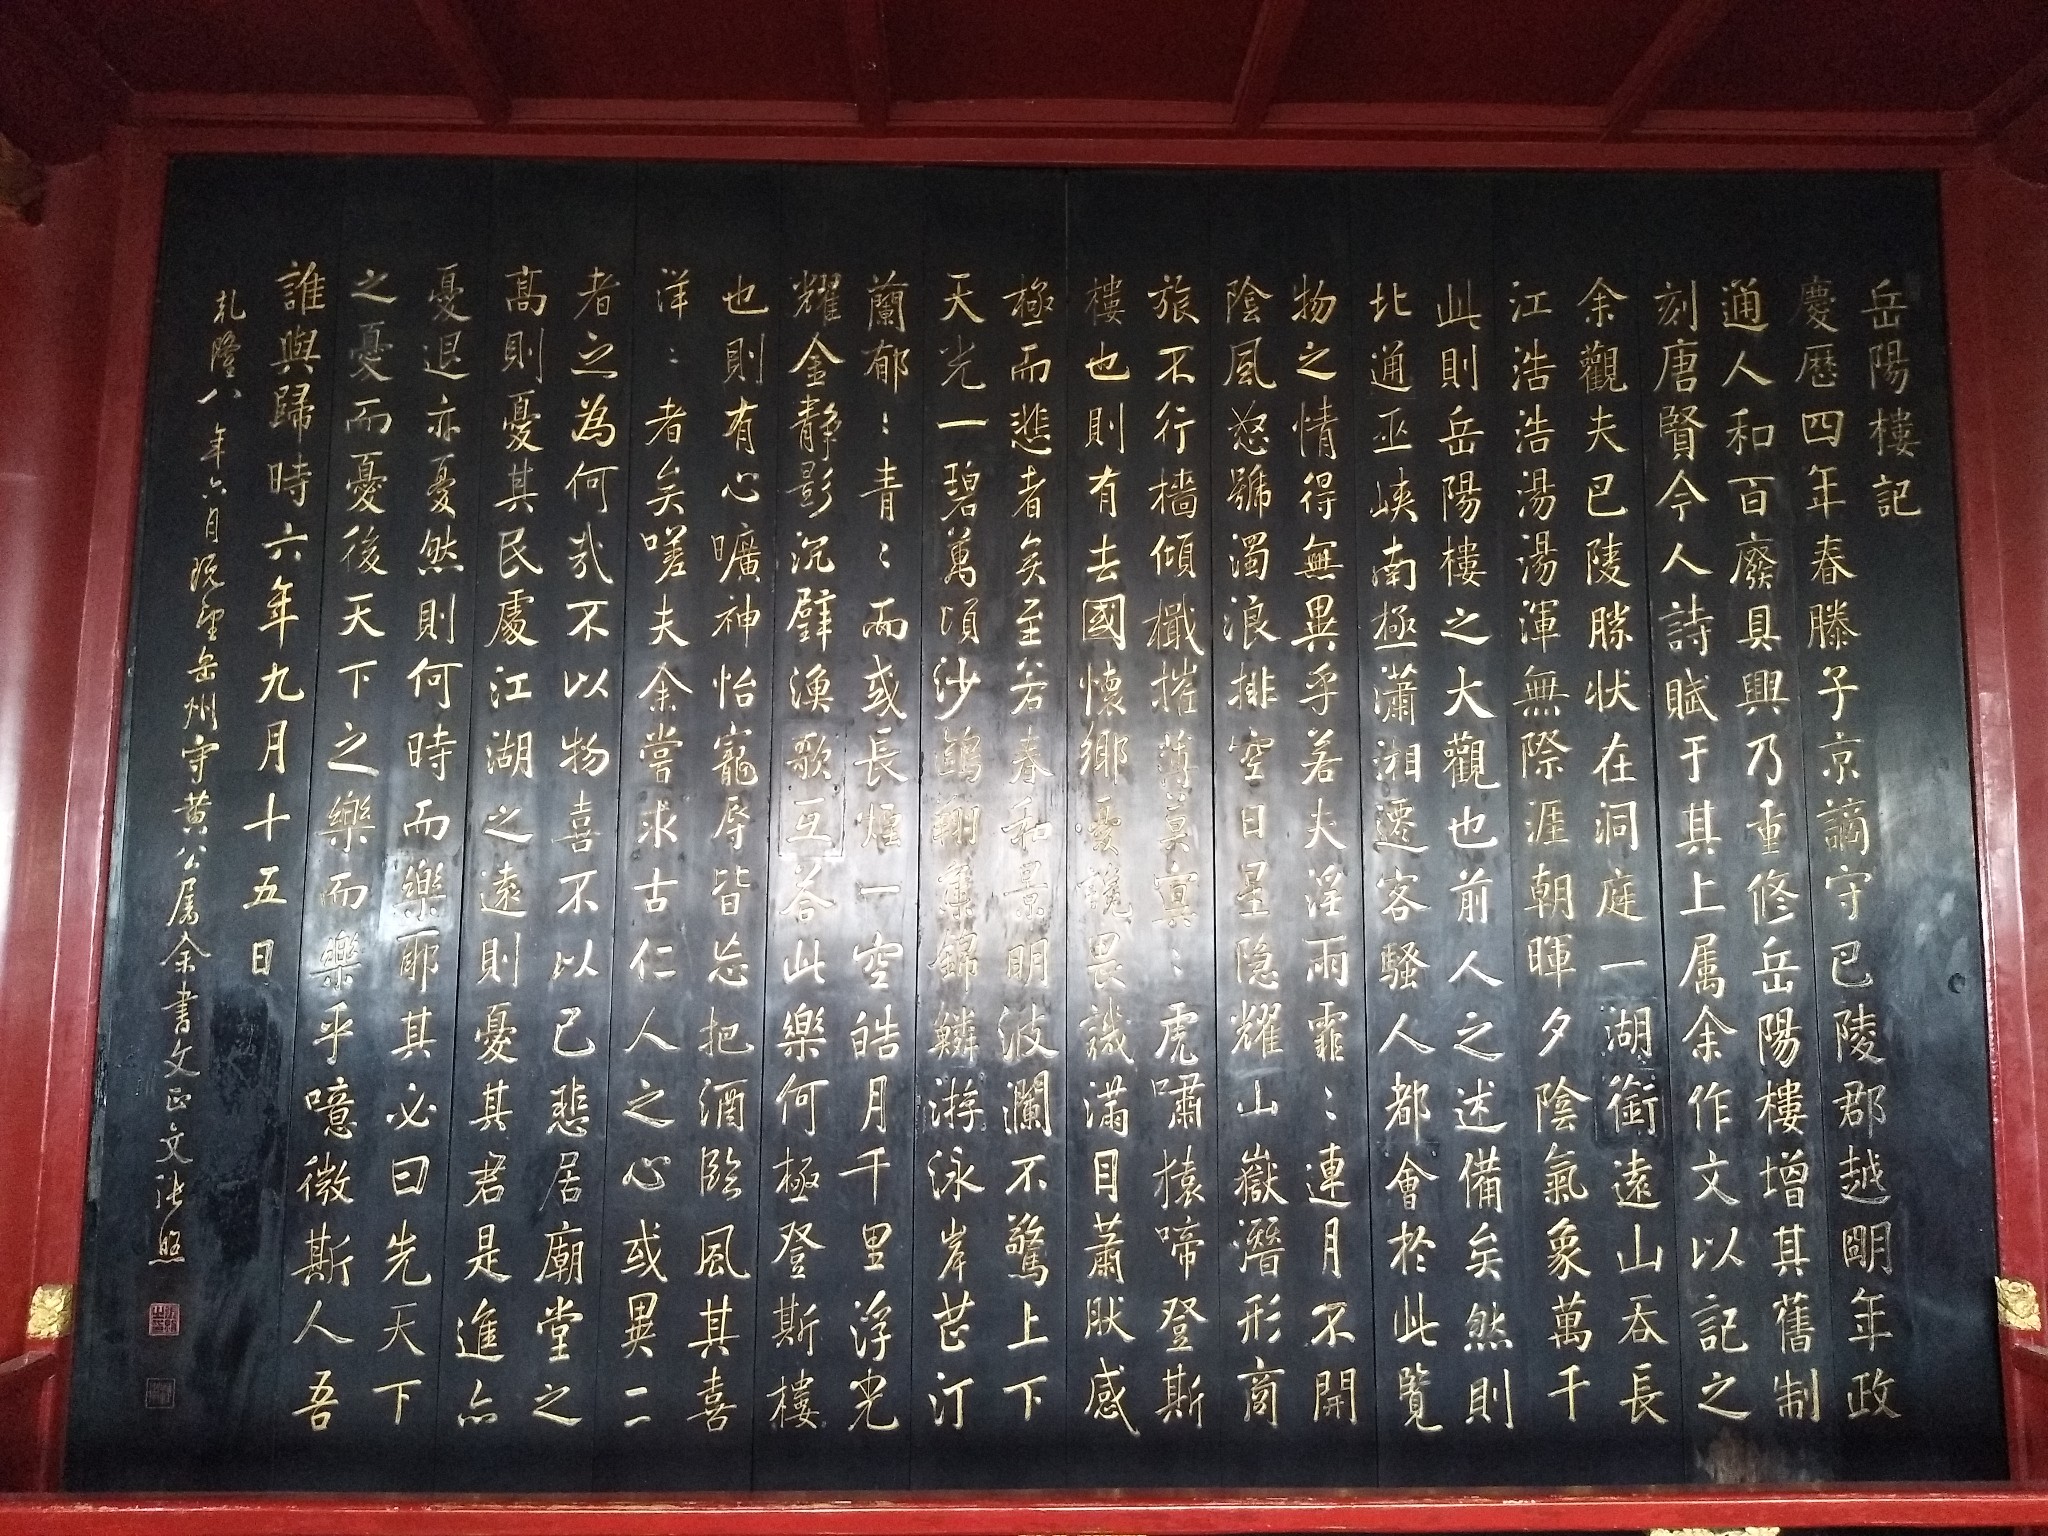 岳陽樓記
慶歷四年春滕子京謫守巴陵郡越明年政
通人和百廢具興乃重修岳陽樓增其舊制
刻唐賢今人詩賦于其上属余作文以記之
余觀夫巴陵勝状在洞庭一湖銜遠山吞長
江浩浩湯湯渾無際涯朝暉夕陰氣象萬千
此則岳陽樓之大觀也前人之述備矣然則
北通巫峽南極瀟湘遷客騷人都會於此覽
物之情得無異乎若夫淫雨霏〻連月不開
陰風怒號濁浪排空日星隱耀山嶽潛形商
旅不行檣傾檝摧薄莫冥〻虎嘯猿啼登斯
樓也則有去國懷鄉憂讒畏譏滿目蕭肰感
極而悲者矣至若春和景明波瀾不驚上下
天光一碧萬頃沙鷗翔集錦鱗游泳岸芷汀
蘭郁〻青〻而或長煙一空皓月千里浮光
耀金靜影沉璧漁歌互答此樂何極登斯樓
也則有心曠神怡寵辱皆忘把酒臨風其喜
洋〻者矣嗟夫余嘗求古仁人之心或異二
者之為何哉不以物喜不以己悲居廟堂之
高則憂其民處江湖之遠則憂其君是進亦
憂退亦憂然則何時而樂耶其必曰先天下
之憂而憂後天下之樂而樂乎噫微斯人吾
誰與歸時六年九月十五日
乾隆八年六月既望岳州守黄公属余書文正文張照